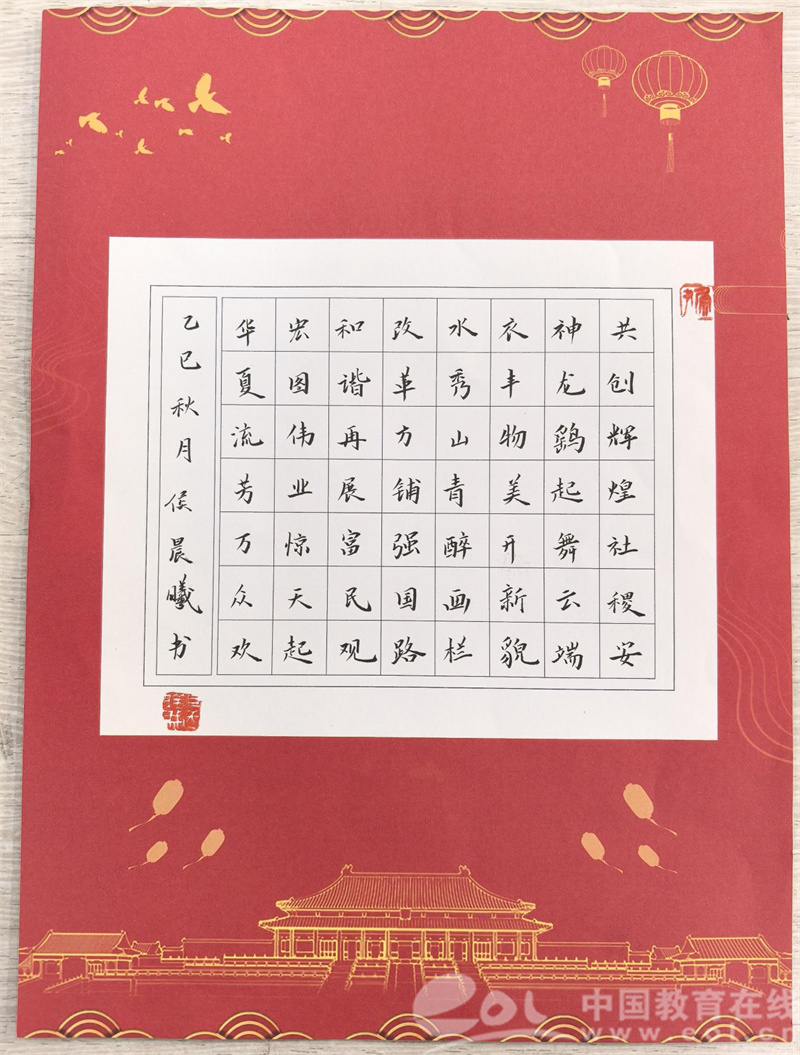 共创辉煌社稷安
神龙起舞云端
衣丰物美开新貌
水秀山青醉画栏
改革方铺强国路
和谐再展富民观
宏图伟业惊天起
华夏流芳万众欢
乙巳秋月侯晨曦书
eol 中国教育在线
www.eol.cn